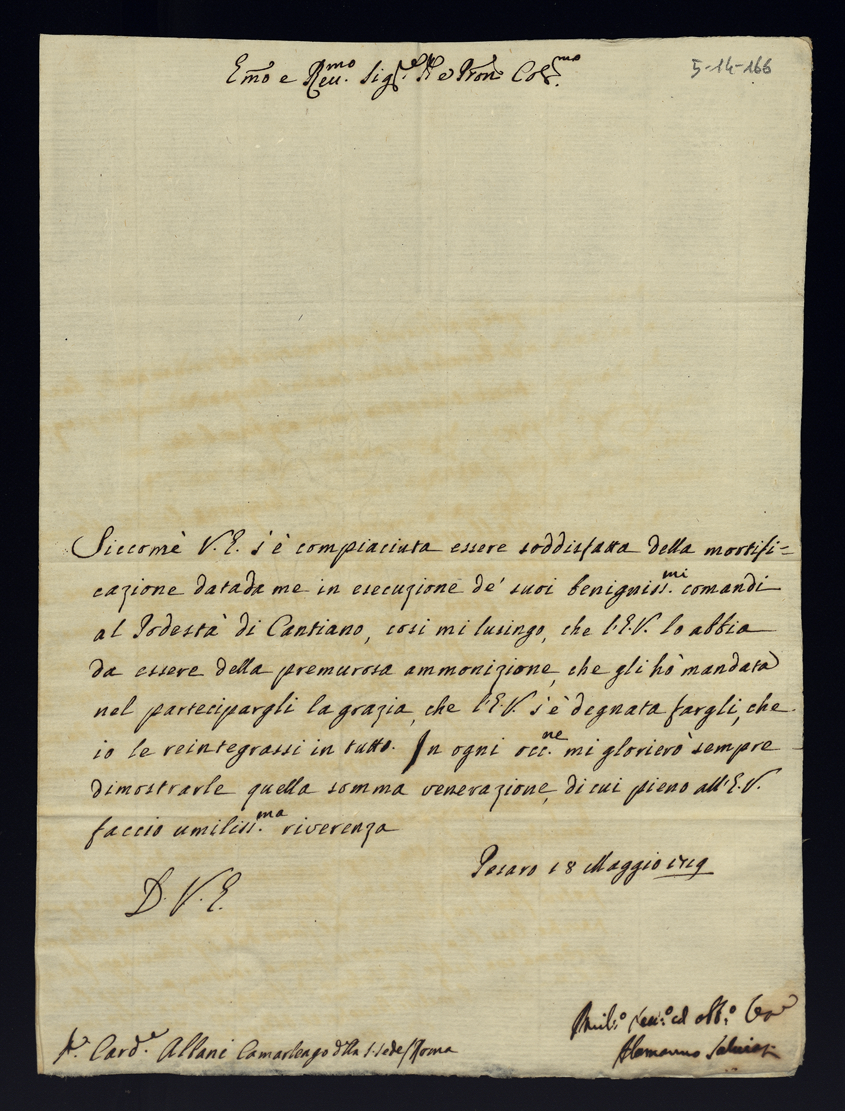 5-14-166
Em̃o e Reu.mo Sig.re Pr̃e e Pron. Col.mo
Siccome V.E. s'è compiaciuta essere soddisfatta della mortifi=
cazione datada me in esecuzione de' suoi benigniss.mi comandi
al Podestà di Cantiano, così mi lusingo, che l'E.V. lo abbia
da essere della premurosa ammonizione, che gli hò mandata
nel partecipargli la grazia, che l'E.V. s'è degnata fargli, che
io le reintegrassi in tutto. In ogni occ.ne mi glorierò sempre
dimostrarle quella somma venerazione, di cui pieno all'E.V.
faccio umiliss.ma riverenza
Pesaro 18 Maggio 1719
D. V. E.
Umil.o Deu.o ed obb.o
Alamanno Salviati
Card.e Albani Camarlengo d'lla S. Sede / Roma